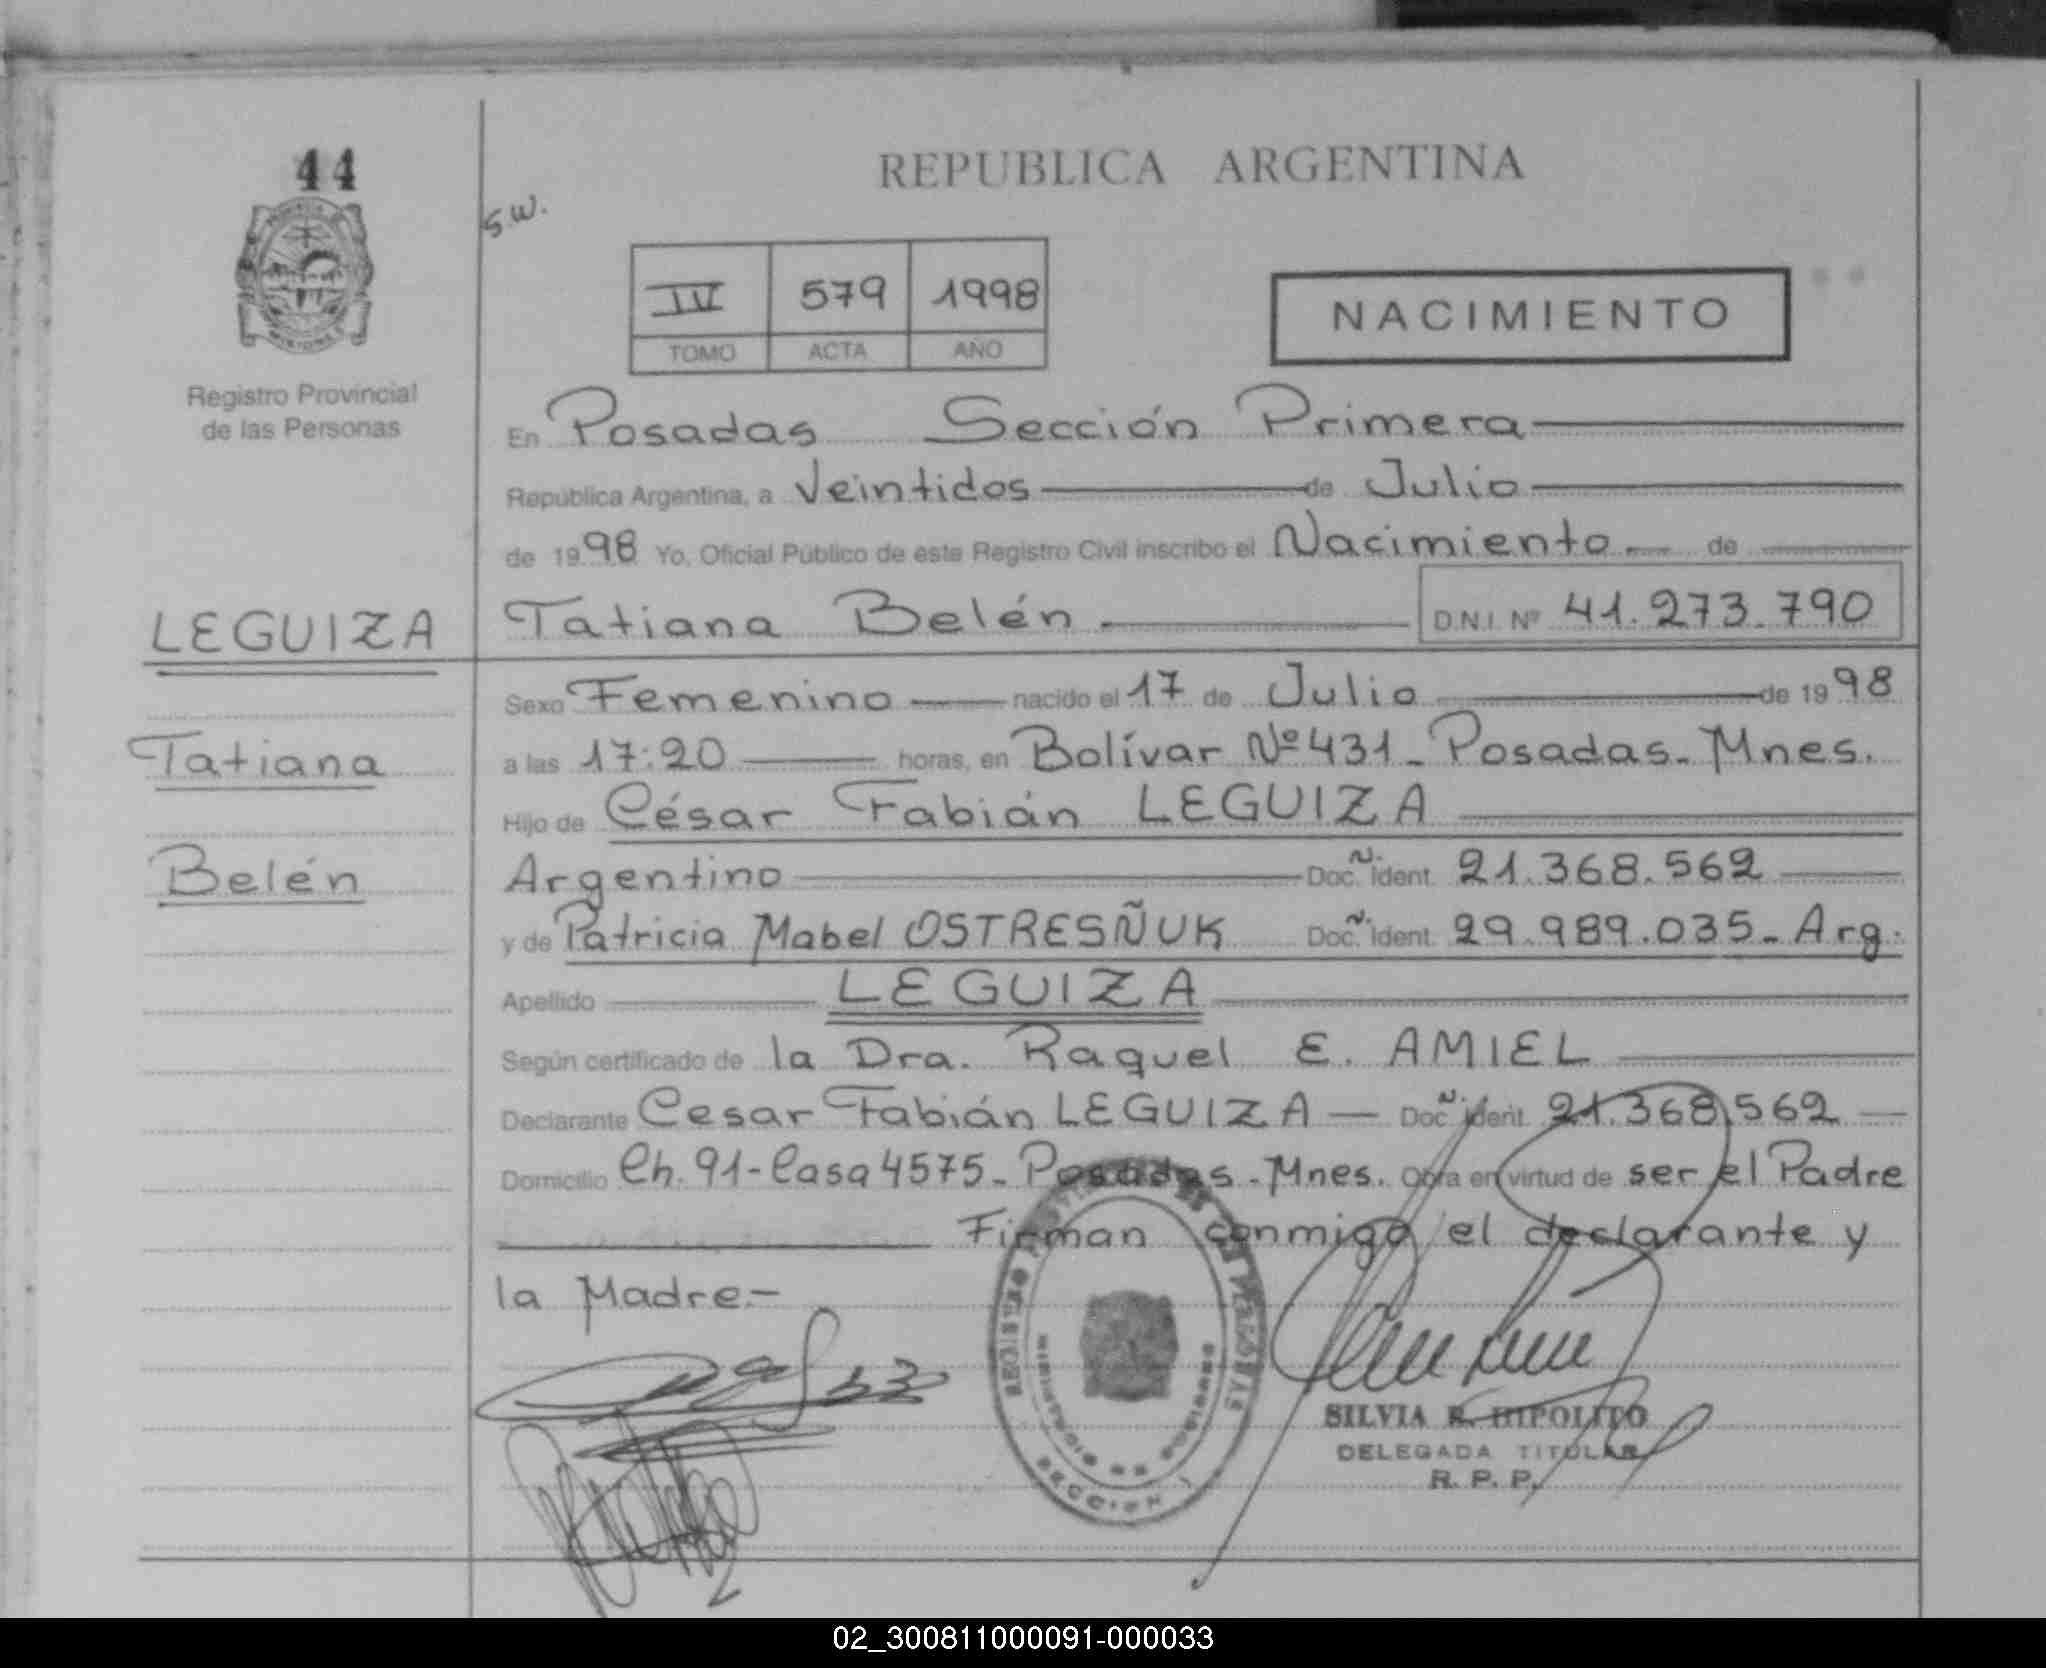 44
REPUBLICA ARGENTINA
S.W.
IV 579 1998
TOMO ACTA AÑO
NACIMIENTO
Registro Provincial
de las Personas
En Posadas Sección Primera
República Argentina, a Veintidos de Julio
de 1998 Yo, Oficial Público de este Registro Civil inscribo el Nacimiento de
LEGUIZA
Tatiana Belén D.N.I. Nº 41.273.790
Sexo Femenino nacido el 17 de Julio de 1998
Tatiana
a las 17:20 horas, en Bolívar Nº 431 - Posadas - Mnes.
Hijo de César Fabián LEGUIZA
Belén
Argentino Doc. Ident. 21.368.562
y de Patricia Mabel OSTRESÑUK Doc. Ident. 29.989.035 - Arg.
Apellido LEGUIZA
Según certificado de la Dra. Raquel E. AMIEL
Declarante Cesar Fabián LEGUIZA — Doc. Ident. 21.368.562 —
Domicilio Ch. 91 - Casa 4575 - Posadas - Mnes. Obra en virtud de ser el Padre
Firman conmigo el declarante y
la Madre.-
REGISTRO PROVINCIAL DE LAS PERSONAS
MINISTERIO DE GOBIERNO
SECCION 1
SILVIA R. HIPOLITO
DELEGADA TITULAR
R. P. P.
02_300811000091-000033